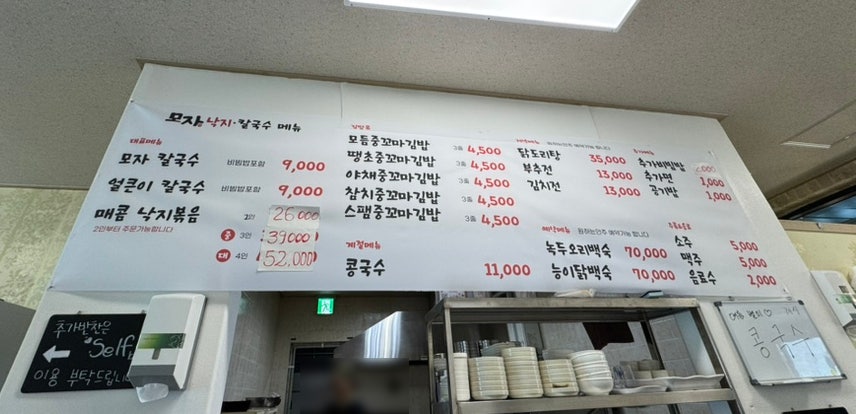 모자 낙지·칼국수 메뉴
대표메뉴
모자 칼국수 비빔밥포함 9,000
얼큰이 칼국수 비빔밥포함 9,000
매콤 낙지볶음 2인 26.000
2인부터 주문가능합니다
중 3인 39.000
대 4인 52.000
김밥류
모듬중꼬마김밥 3줄 4,500
땡초중꼬마김밥 3줄 4,500
야채중꼬마김밥 3줄 4,500
참치중꼬마김밥 3줄 4,500
스팸중꼬마김밥 3줄 4,500
계절메뉴
콩국수 11,000
닭도리탕 35,000
부추전 13,000
김치전 13,000
예약메뉴
녹두오리백숙 70,000
능이닭백숙 70,000
추가메뉴
추가비빔밥 2,000
추가면 1,000
공기밥 1,000
소주 5,000
맥주 5,000
음료수 2,000
추가반찬은
← Self
이용 부탁드립니다
개시
콩국수